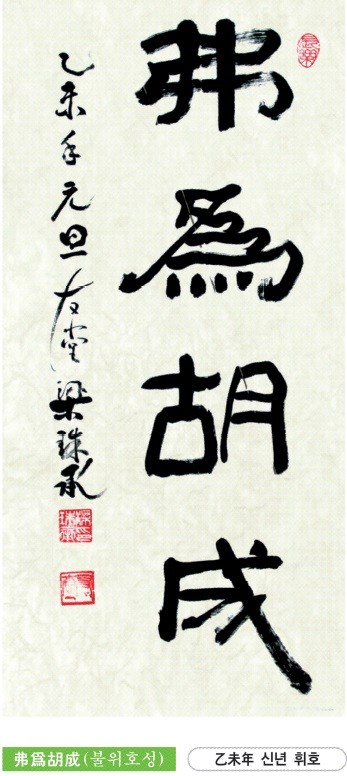 弗爲胡成
乙未年元旦 友堂 梁珠承
弗爲胡成(불위호성)
乙未年 신년 휘호